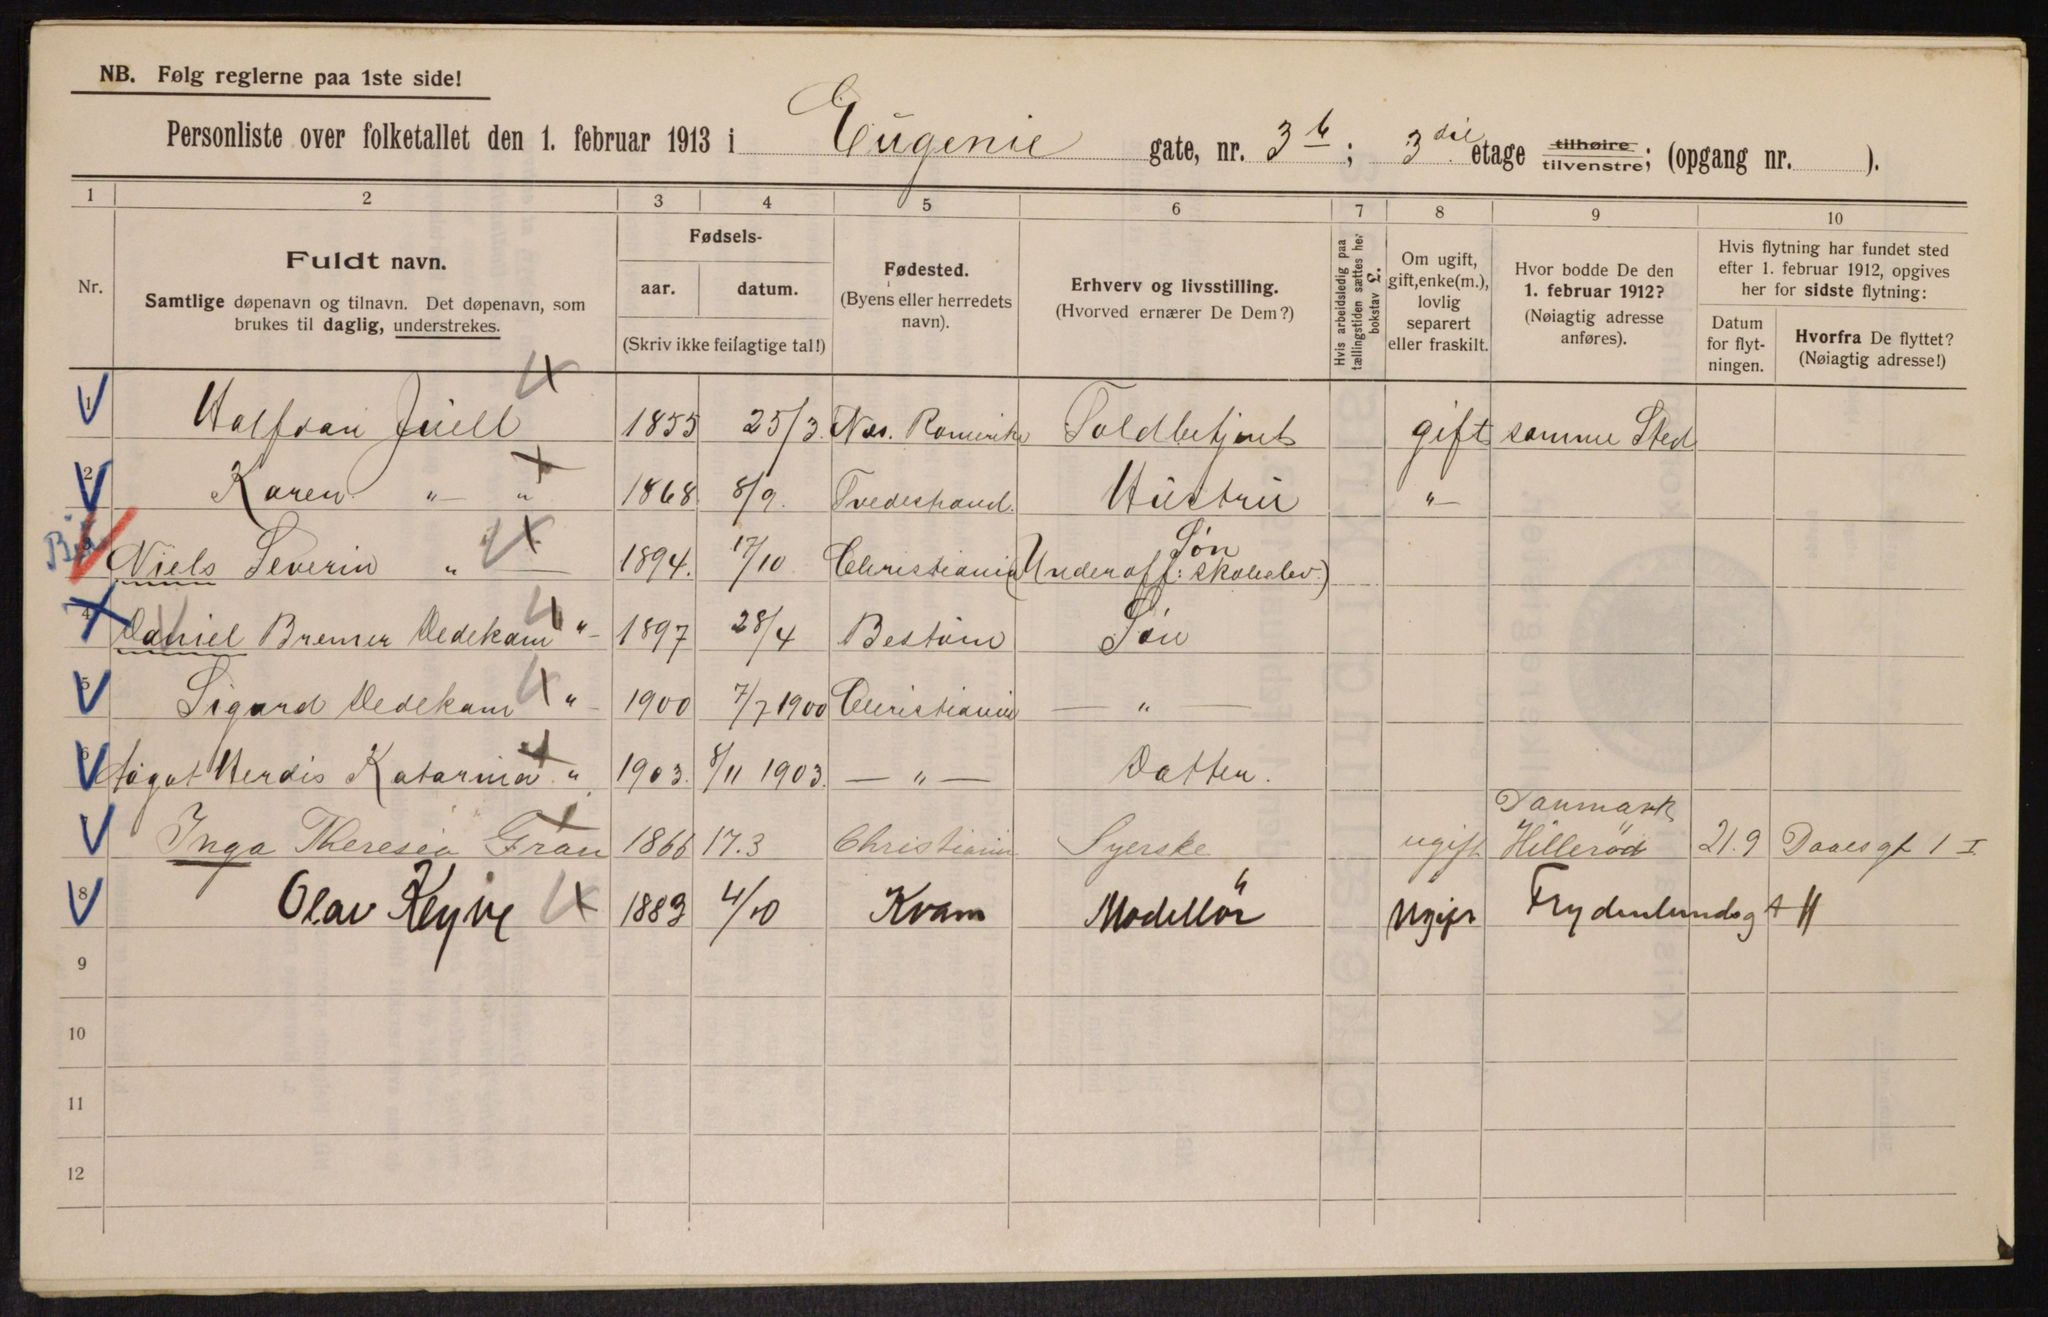 NB. Følg reglerne paa 1ste side!
Personliste over folketallet den 1. februar 1913 i Eugenie gate, nr. 3 b; 3 die etage tilhøire tilvenstre; (opgang nr. ).
1 2 3 4 5 6 7 8 9 10
Nr.
Fuldt navn.
Samtlige døpenavn og tilnavn. Det døpenavn, som
brukes til daglig, understrekes.
Fødsels-
aar. datum.
(Skriv ikke feilagtige tal!)
Fødested.
(Byens eller herredets
navn).
Erhverv og livsstilling.
(Hvorved ernærer De Dem?)
Hvis arbeidsledig paa
tællingstiden sættes her
bokstav L.
Om ugift,
gift, enke(m.),
lovlig
separert
eller fraskilt.
Hvor bodde De den
1. februar 1912?
(Nøiagtig adresse
anføres).
Hvis flytning har fundet sted
efter 1. februar 1912, opgives
her for sidste flytning:
Datum
for flyt-
ningen.
Hvorfra De flyttet?
(Nøiagtig adresse!)
1 Halfdan Juell 1855 25/3 Næs. Romerike Toldbetjent gift samme Sted
2 Karen " " 1868 8/9 Tvedestrand. Hustru "
3 Niels Severin " 1894. 17/10 Christiania Søn (Underoff: skoleelev.)
4 Daniel Bremer Dedekam " 1897 28/4 Bestum Søn
5 Sigurd Dedekam " 1900 7/7 1900 Christiania "
6 Aagot Herdis Katarina " 1903. 8/11 1903 " Datter.
Inga Theresia Gran 1866 17.3 Christiania Syerske ugift Danmark Hillerød 21.9 Daaesgt 1 I
8 Olav 1883 4/10 Kvam Modellör Ugift Frydenlundsgt
9
10
11
12